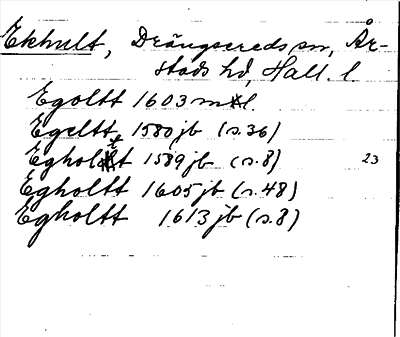 Ekhult, Drängsereds sn, År-
stads hd, Hall. l.
Egoltt 1603 mtl.
Egeltt 1580 jb (s. 36)
Egholtt 1589 jb (s. 8) 23
Egholtt 1605 jb (s. 48)
Egholtt 1613 jb (s. 8)